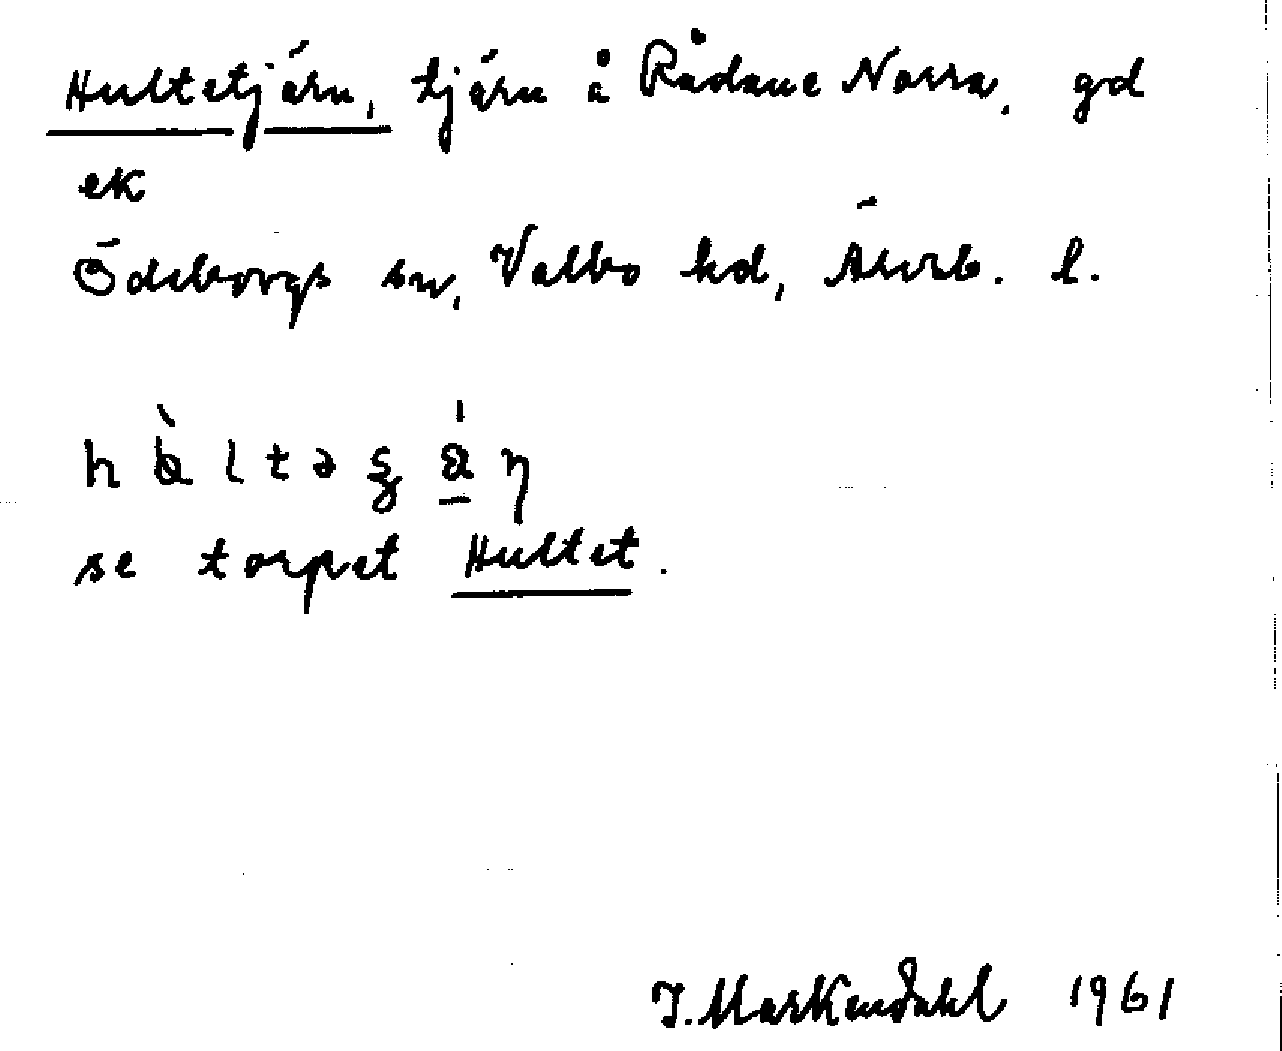 Hultetjärn, tjärn å Rådane Norra, gd
ek
Ödeborgs sn, Valbo hd, Älvsb. l.
se torpet Hultet.
J. Markendahl 1961